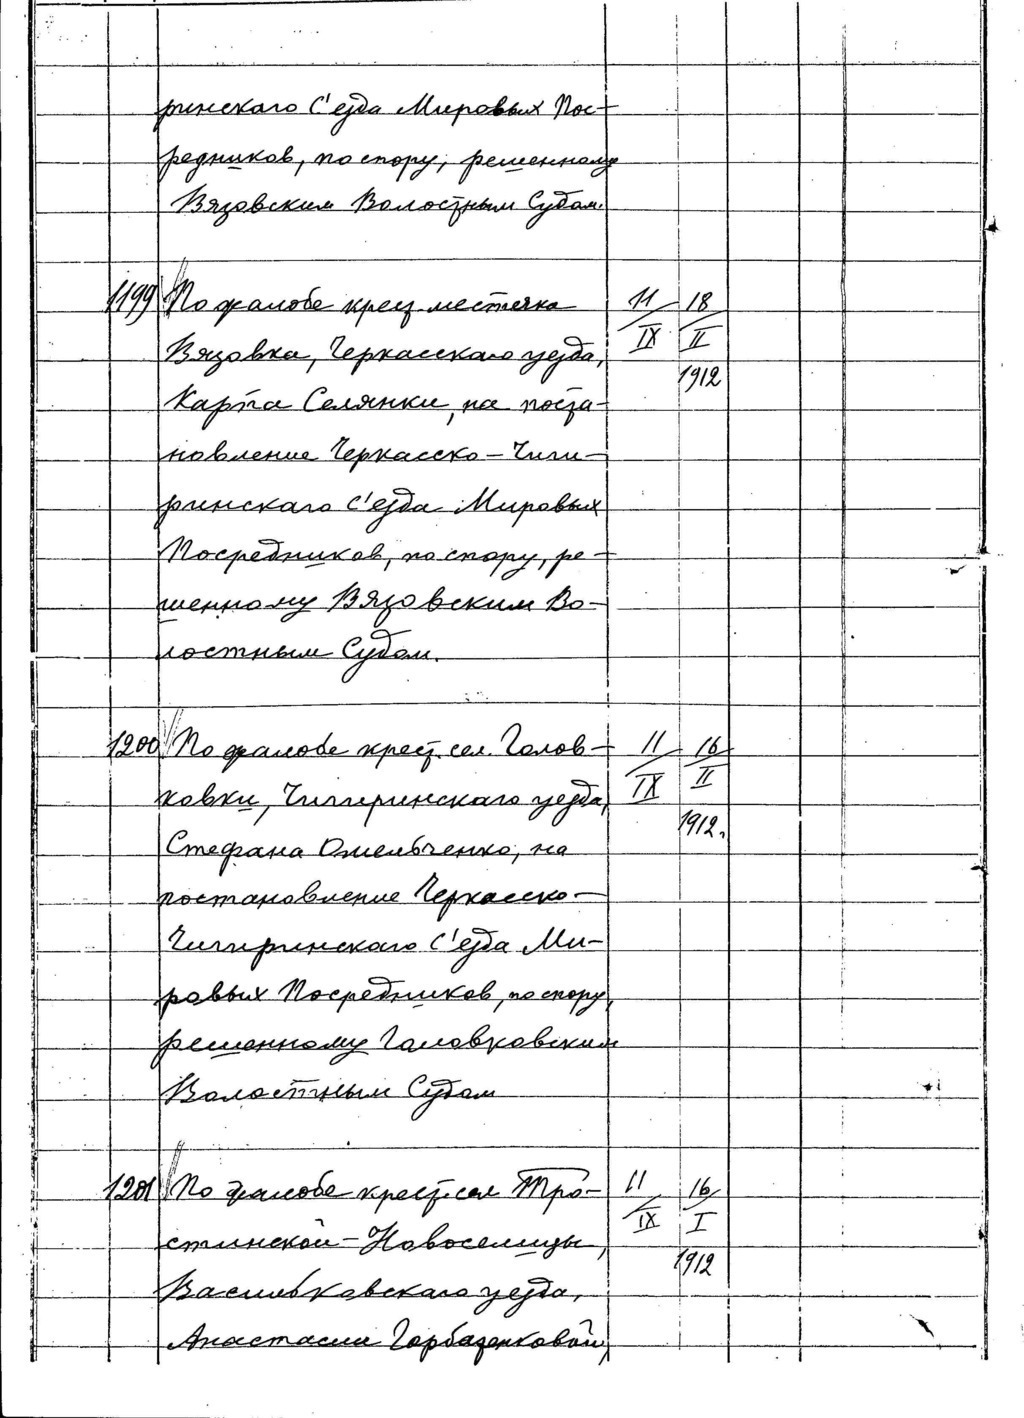 ринскаго С'езда Мировых Пос-
редников, по спору, решенному
Вязовским Волостным Судом.
1199 По жалобе крест. местечка 11/IX 18/II 1912
Вязовка, Черкасскаго уезда,
Карпа Селянки, на поста-
новление Черкасско-Чиги-
ринскаго С'езда Мировых
Посредников, по спору, ре-
шенному Вязовским Во-
лостным Судом.
1200 По жалобе крест. сел. Голов- 11/IX 16/II 1912.
ковки, Чигиринскаго уезда,
Стефана Омельченко, на
постановление Черкасско-
Чигиринскаго С'езда Ми-
ровых Посредников, по спору,
решенному Головковским
Волостным Судом
1201 По жалобе крест. сел Тро- 11/IX 16/I 1912
стинской-Новоселицы,
Васильковскаго уезда,
Анастасии